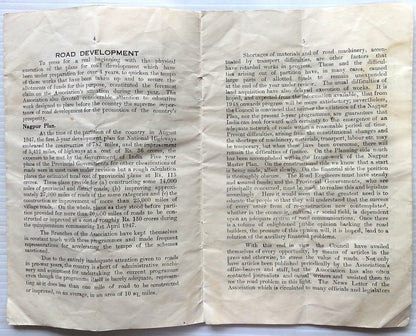 4
ROAD DEVELOPMENT
To press for a real beginning with the physical
execution of the plans for road development which have
been under preparation for over 4 years, to quicken the tempo
of these works that have been taken up and to secure the
allotments of funds for this purpose, constituted the foremost
claim on the Association's attention during the year. The
Association also devoted considerable attention to educative
work designed to place before the country the supreme import-
tance of road development for the promotion of the country's
prosperity.
Nagpur Plan.
At the time of the partition of the country in August
1947, the first 5-year development plan for National Highways
embraced the construction of 787 miles, and the improvement
of 3,451 miles of highways at a cost of Rs. 28 crores, the
expenses to be met by the Government of India. Five year
plans of the Provincial Governments for other classifications of
roads were in most cases under revision but a rough calculation
places the estimated total cost of provincial plans at Rs. 115
crores. These plans provide for (a) construction of some
miles of provincial and district roads, (b) improving approxi-
mately 27,000 miles of roads of the same categories and (c) the
construction or improvement of more than 25,000 miles of
village roads. On the whole, plans as they stood before parti-
tion provided for more than 70,000 miles of roads to be con-
structed or improved at a cost of roughly Rs. 150 crores during
the quinquennium commencing 1st April 1947.
The Branches of the Association have kept themselves
in constant touch with these programmes and made frequent
representations for accelerating the tempo of the schemes
sanctioned.
Due to the entirely inadequate attention given to roads
in pre-war years, the country is short of administrative machi-
nery and equipment for undertaking the current programme
even though the programme itself is barely adequate, represen-
ting as it does less than one mile of road to be constructed
or improved, on an average, in an area of 10 sq. miles.
5
Shortages of materials and of road machinery, accen-
tuated by transport difficulties, are other factors that
have retarded works in progress. These and the difficul-
ties arising out of partition have, in many cases, caused
large parts of allotted funds to remain unexpended
at the end of the year under review. The usual difficulties of
land acquisition have also delayed execution of works. It is
hoped, and repeated local representations will ensure, that from
1948 onwards progress will be more satisfactory; nevertheless,
the Council is convinced that unless the objectives of the Nagpur
Plan, nor the present 5-year programmes, are guaranteed
India can look forward with certainty to the emergence of an
adequate network of roads within a reasonable period of time.
Present difficulties arising from the constitutional changes and
the shortages of equipment, materials, transport, labour etc. may
be temporary, but when these have been overcome, there will
remain the difficulties of finance. On the Planning side much
has been accomplished within the frame work of the Nagpur
Master Plan. On the constructional side we know that a start
is being made, albeit slowly. On the financial side the position
is thoroughly unsound. The Road Engineers must have steady
and assured funds, and the Provincial Governments, who are
principally concerned, must be made to realise this and legislate
accordingly. Failure it would seem that the greatest need is to
educate the people so that they will understand that the success
of every other form of reconstruction now contemplated,
whether in the economic, cultural or social field, is dependent
upon an adequate system of road communications. Once there
is a volume of enlightened public opinion backing the road
builders, the pressure of this opinion will, it is hoped, lead to a
solution of the auxiliary financial problems.
With this end in view the Council have availed
themselves of every opportunity, by means of articles in the
press and otherwise, to stress the value of roads. Not only
have articles been published periodically by the Association's
office-bearers and staff, but the Association has also often
contacted journalists and casual writers and assisted them to
see the road problem in this light. The News Letter of the
Association which is circulated to many officials and legislators